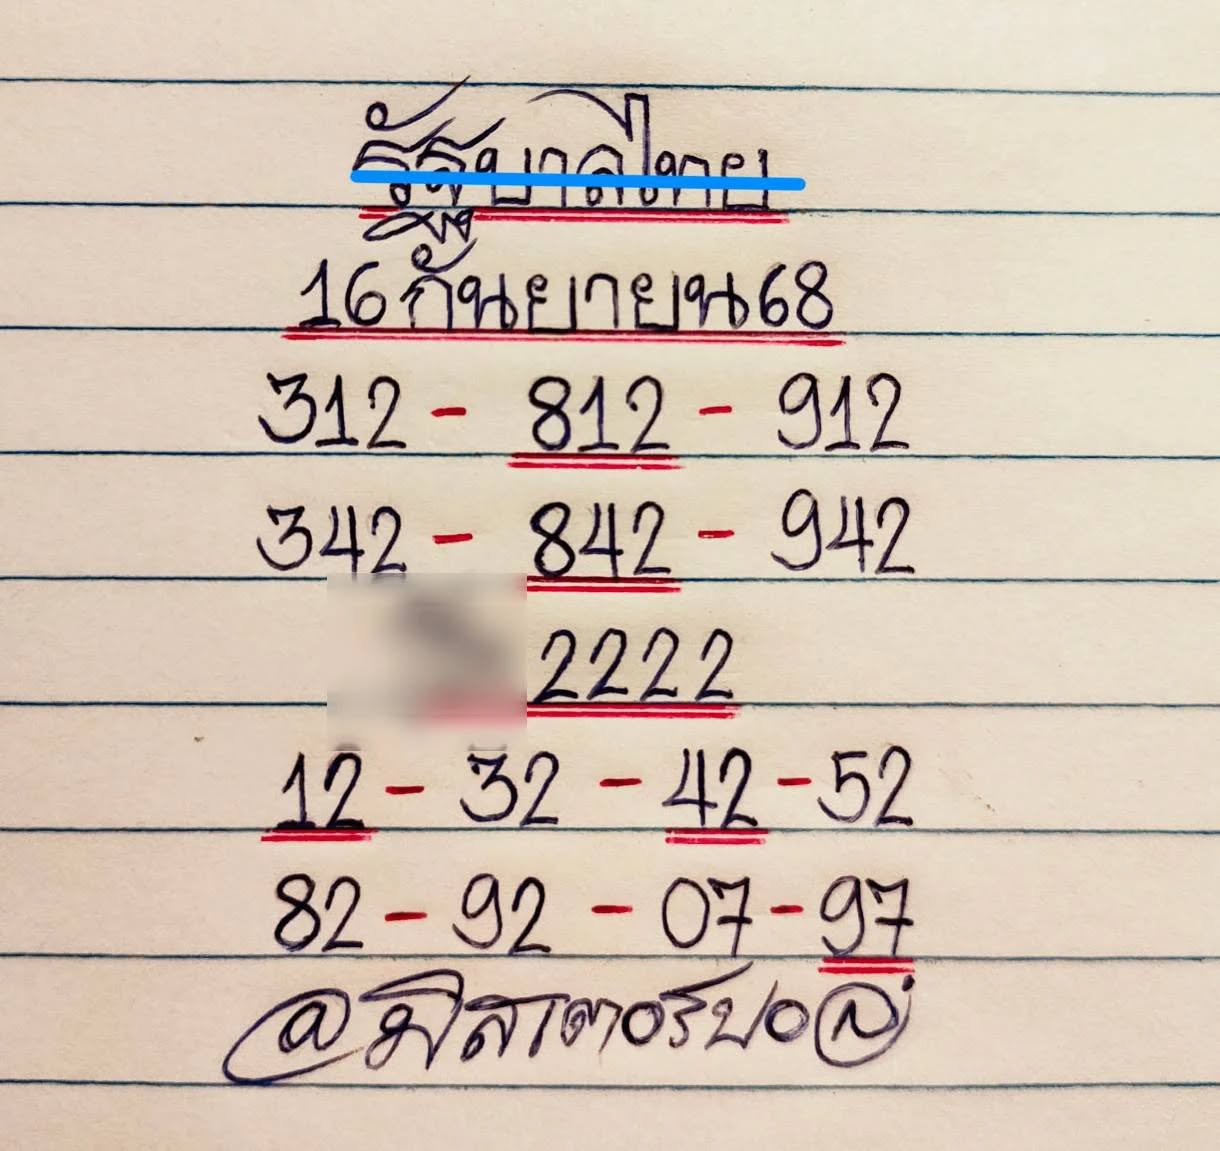 รัฐบาลไทย
16 กันยายน 68
312 - 812 - 912
342 - 842 - 942
2222
12 - 32 - 42 - 52
82 - 92 - 07 - 97
@มิสเตอร์บอล